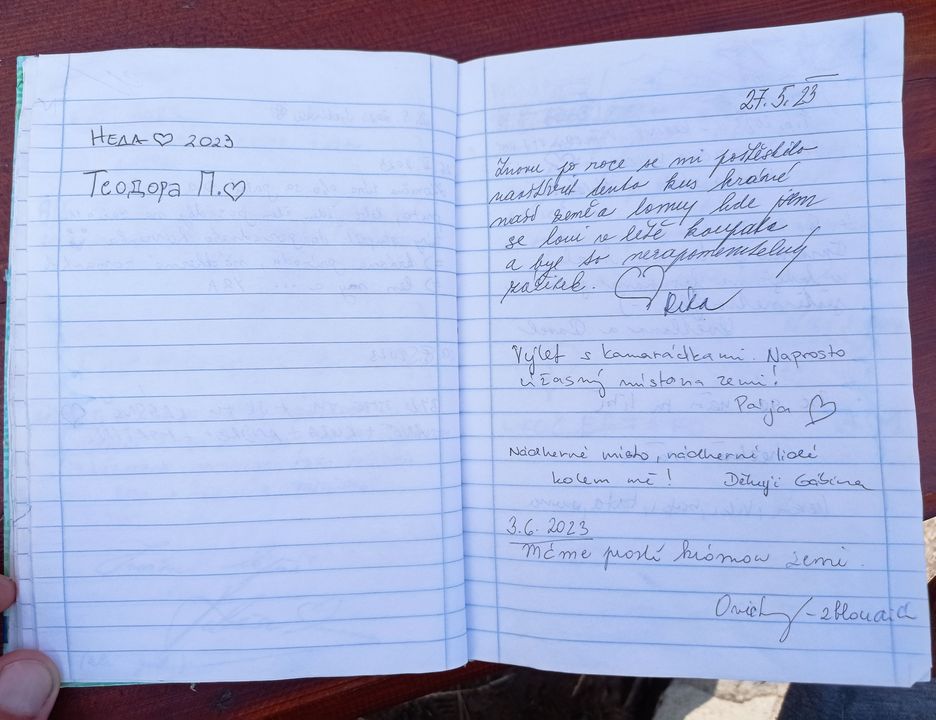 Неда ♡ 2023
Теодора П. ♡
27.5.23
Znovu po roce se mi poštěstilo
navštívit tento kus krásné
naší země a lomy kde jsem
se loni v létě koupala
a byl to nezapomenutelný
zážitek. ♡
Rika
Výlet s kamarádkami. Naprosto
úžasný místo na zemi!
Parja ♡
Nádherné místo, nádherní lidé
kolem mě! Děkuji Gábina
3.6.2023
Máme prostě krásnou zemi.